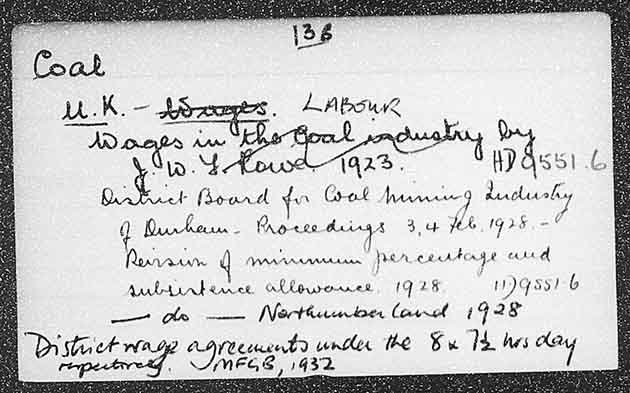 138
Coal
U.K. – Wages. LABOUR
Wages in the Coal industry by
J. W. F. Rowe. 1923. HD9551.6
District Board for Coal Mining Industry
of Durham – Proceedings 3, 4 Feb. 1928. –
Revision of minimum percentage and
subsistence allowance. 1928. HD9551.6
— do — Northumberland 1928
District wage agreements under the 8 & 7½ hrs day
respectively. MFGB, 1932